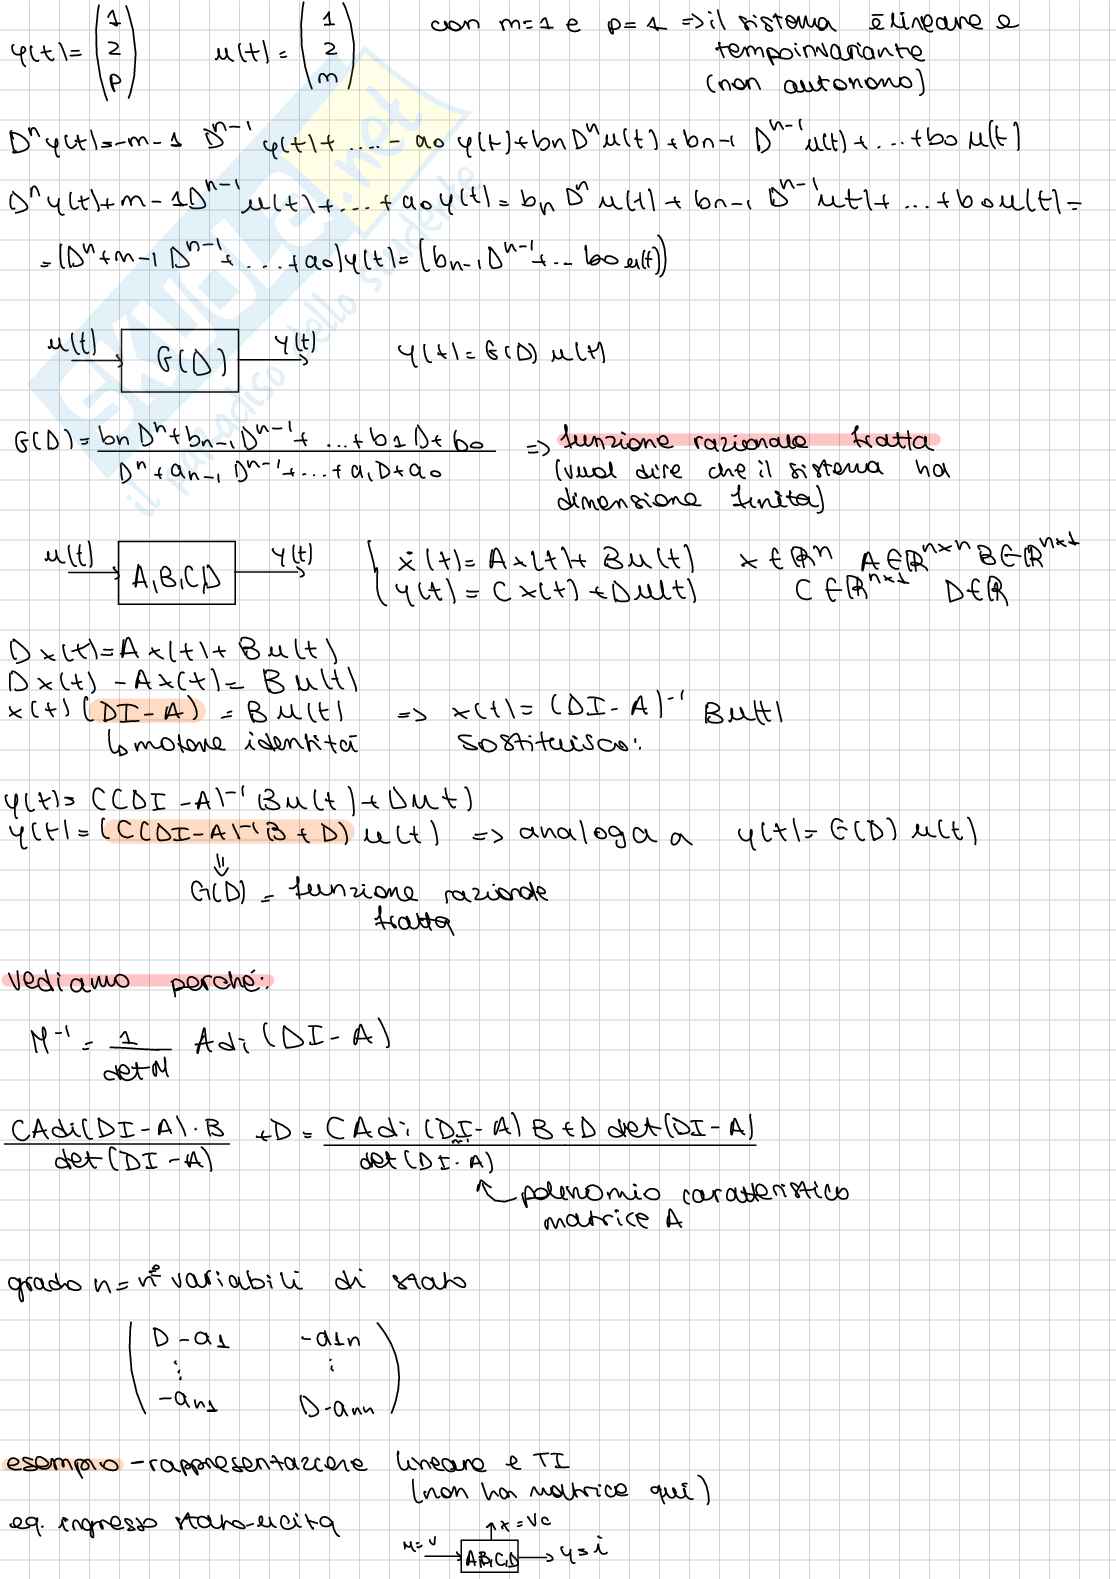 y(t)= (1 2 p) u(t)= (1 2 m) con m=1 e p=1 => il sistema è lineare e
tempoinvariante
(non autonono)
Dⁿ y(t)=-m-1 Dⁿ⁻¹ y(t)+ ....- a0 y(t)+bn Dⁿ u(t)+bn-1 Dⁿ⁻¹ u(t)+...+b0 u(t)
Dⁿ y(t)+m-1 Dⁿ⁻¹ u(t)+...+a0 y(t)= bn Dⁿ u(t)+bn-1 Dⁿ⁻¹ ut)+...+b0 u(t)=
=(Dⁿ+m-1 Dⁿ⁻¹+...+a0)y(t)=(bn-1 Dⁿ⁻¹+... b0 u(t))
u(t) G(D) y(t) y(t)=G(D) u(t)
G(D)= bn Dⁿ+bn-1 Dⁿ⁻¹+ ...+b1 D+b0 => funzione razionale fratta
Dⁿ+an-1 Dⁿ⁻¹+...+a1 D+a0 (vuol dire che il sistema ha
dimensione finita)
u(t) A,B,C,D y(t) { ẋ(t)=Ax(t)+Bu(t) x∈ℝⁿ A∈ℝⁿˣⁿ B∈ℝⁿˣ¹
y(t)=Cx(t)+Du(t) C∈ℝⁿˣ¹ D∈ℝ
Dx(t)=Ax(t)+Bu(t)
Dx(t) -Ax(t)= Bu(t)
x(t) (DI-A) = Bu(t) => x(t)= (DI-A)⁻¹ Bu(t)
identità sostituisco:
y(t)= C(DI-A)⁻¹ (Bu(t)+Dut)
y(t)=(C(DI-A)⁻¹B+D) u(t) => analoga a y(t)=G(D) u(t)
⇓
G(D) = funzione razionale
fratta
vediamo perché:
M⁻¹ = 1 Adi (DI-A)
det M
CAdi(DI-A)·B +D= CAdi (DI-A)B+D det(DI-A)
det(DI-A) det(DI-A)
polinomio caratteristico
matrice A
grado n= n° variabili di stato
( D-a1 -a1n
⋮ ⋮
-an1 D-ann )
esempio -rappresentazione lineare e TI
(non ha matrice qui)
eq. ingresso stato-uscita
x=Vc
u=v A,B,C,D y=i
SKUOLA.net
il paradiso dello studente